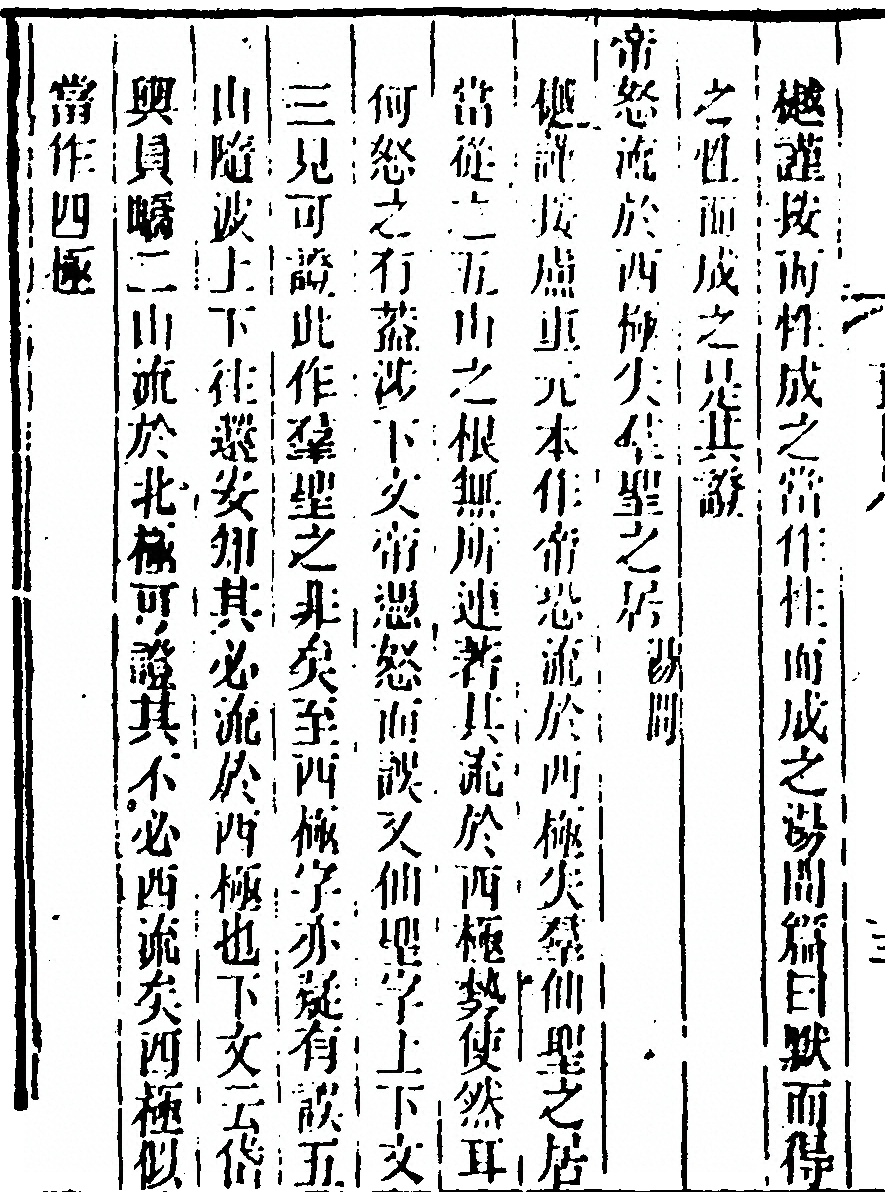 樾謹按而性成之當作性而成之湯問篇曰默而得
之性而成之是其證
帝怒流於西極失羣聖之居湯問
樾謹按盧重元本作帝恐流於西極失羣仙聖之居
當從之五山之根無所連著其流於西極勢使然耳
何怒之有蓋涉下文帝憑怒而誤又仙聖字上下文
三見可證此作羣聖之非矣至西極字亦疑有誤五
山隨波上下往還安知其必流於西極也下文云岱
輿員嶠二山流於北極可證其不必西流矣西極似
當作四極